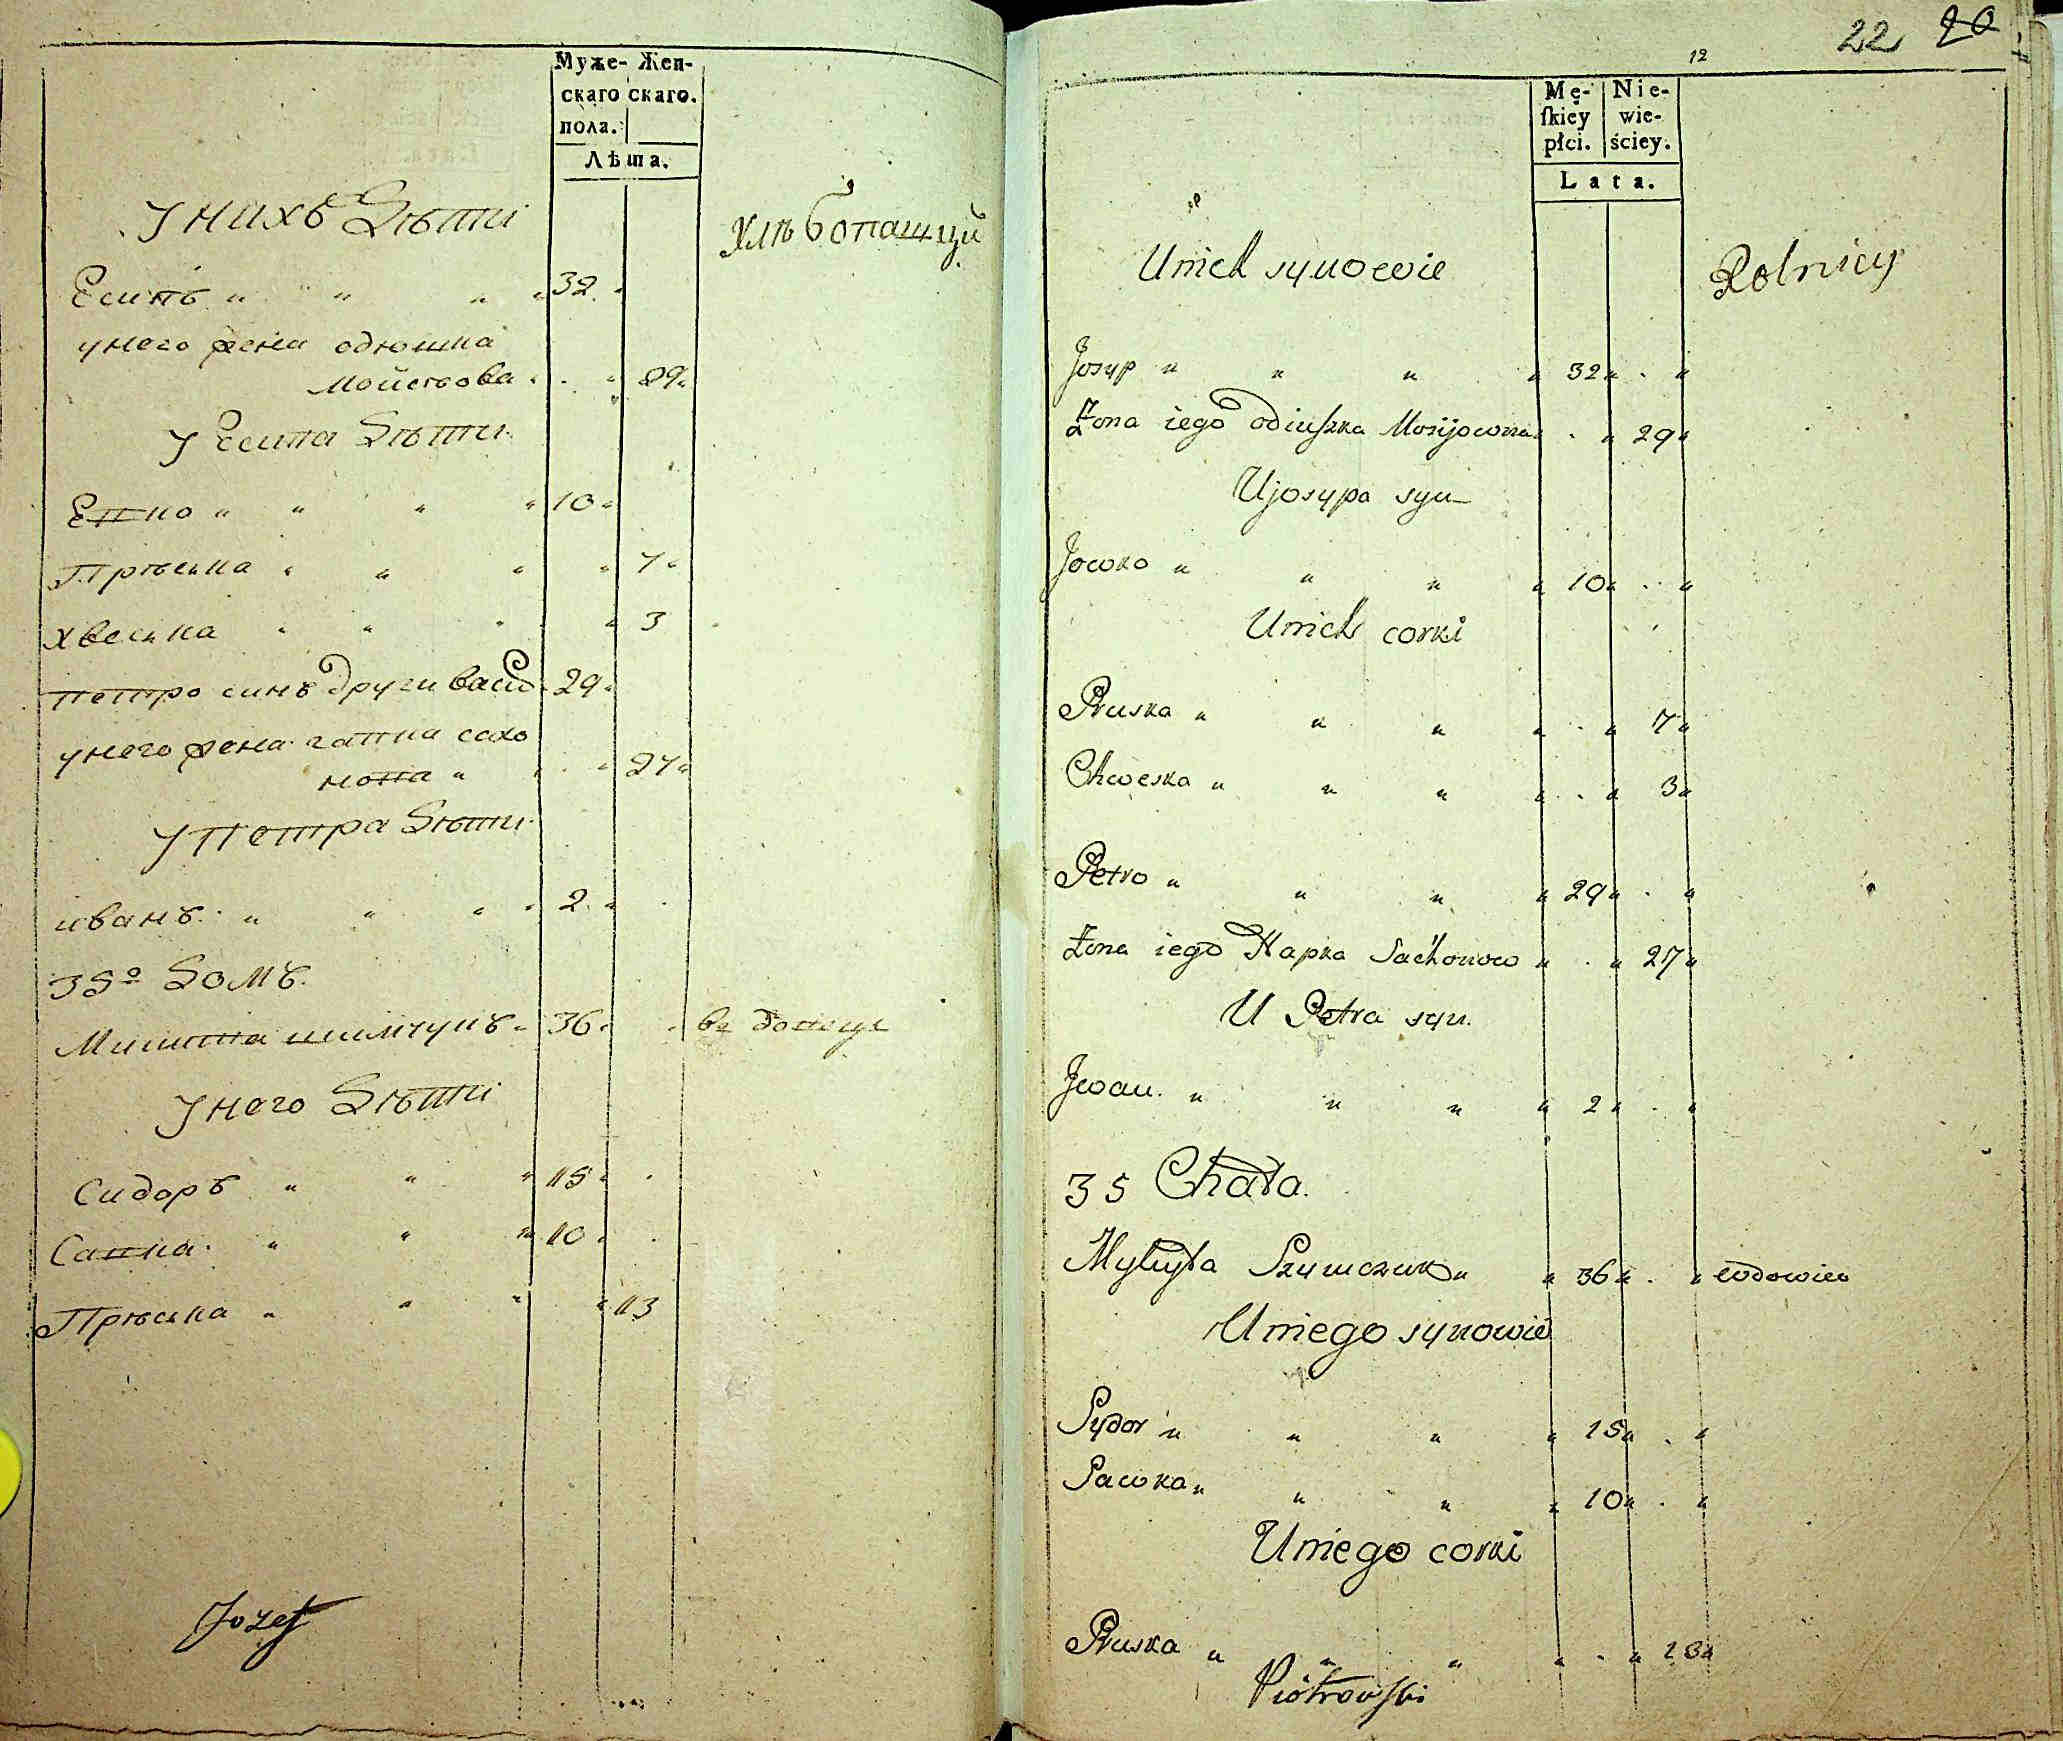 Муже- Жен-
скаго скаго.
пола.
Лѣта.
Унихъ Дѣти
Хлѣбопашци
Есипъ 32
унего жена одюшка
Мойсѣова 29
У Есипа Дѣти
Евко 10
Прѣська 7
Хвеська 3
петро синъ други 29
унего жена гапка сахо
нова 27
У петра Дѣти
иванъ 2
35º Домъ
Микита шимчукъ 36
Унего Дѣти
Сидоръ 15
Савка 10
Прѣська 13
Jozef
22 20
12
Mę- Nie-
ſkiey wie-
płci. ściey.
Lata.
Unich synowie
Rolnicy
Josyp 32
Żona iego odiuszka Mosijowna 29
U josypa syn
Jowko 10
Unich corki
Pruska 7
Chweska 3
Petro 29
Żona iego Hapka Sachonow 27
U Petra syn
Jwan 2
35 Chata.
Mykyta Szymczuk 36 wdowiec
Uniego synowie
Sydor 15
Sawka 10
Uniego corki
Pruska 13
Piotrowſki